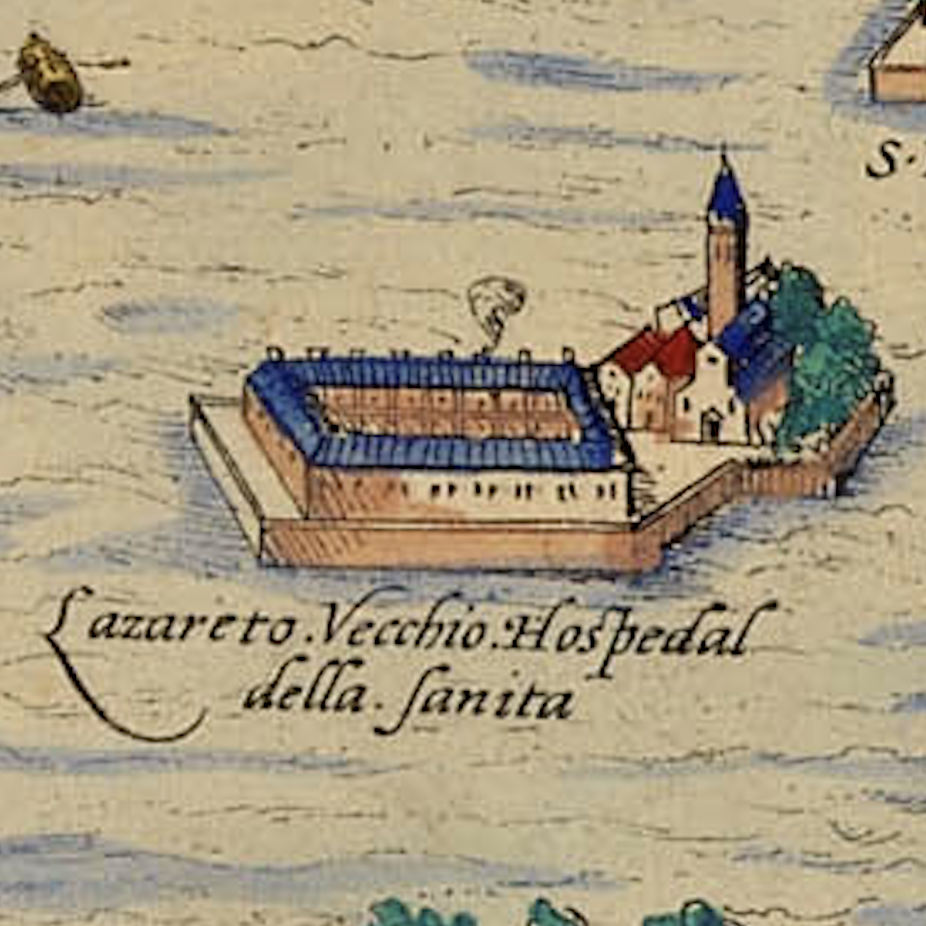 S.
Lazareto.Vecchio.Hospedal
della.sanita